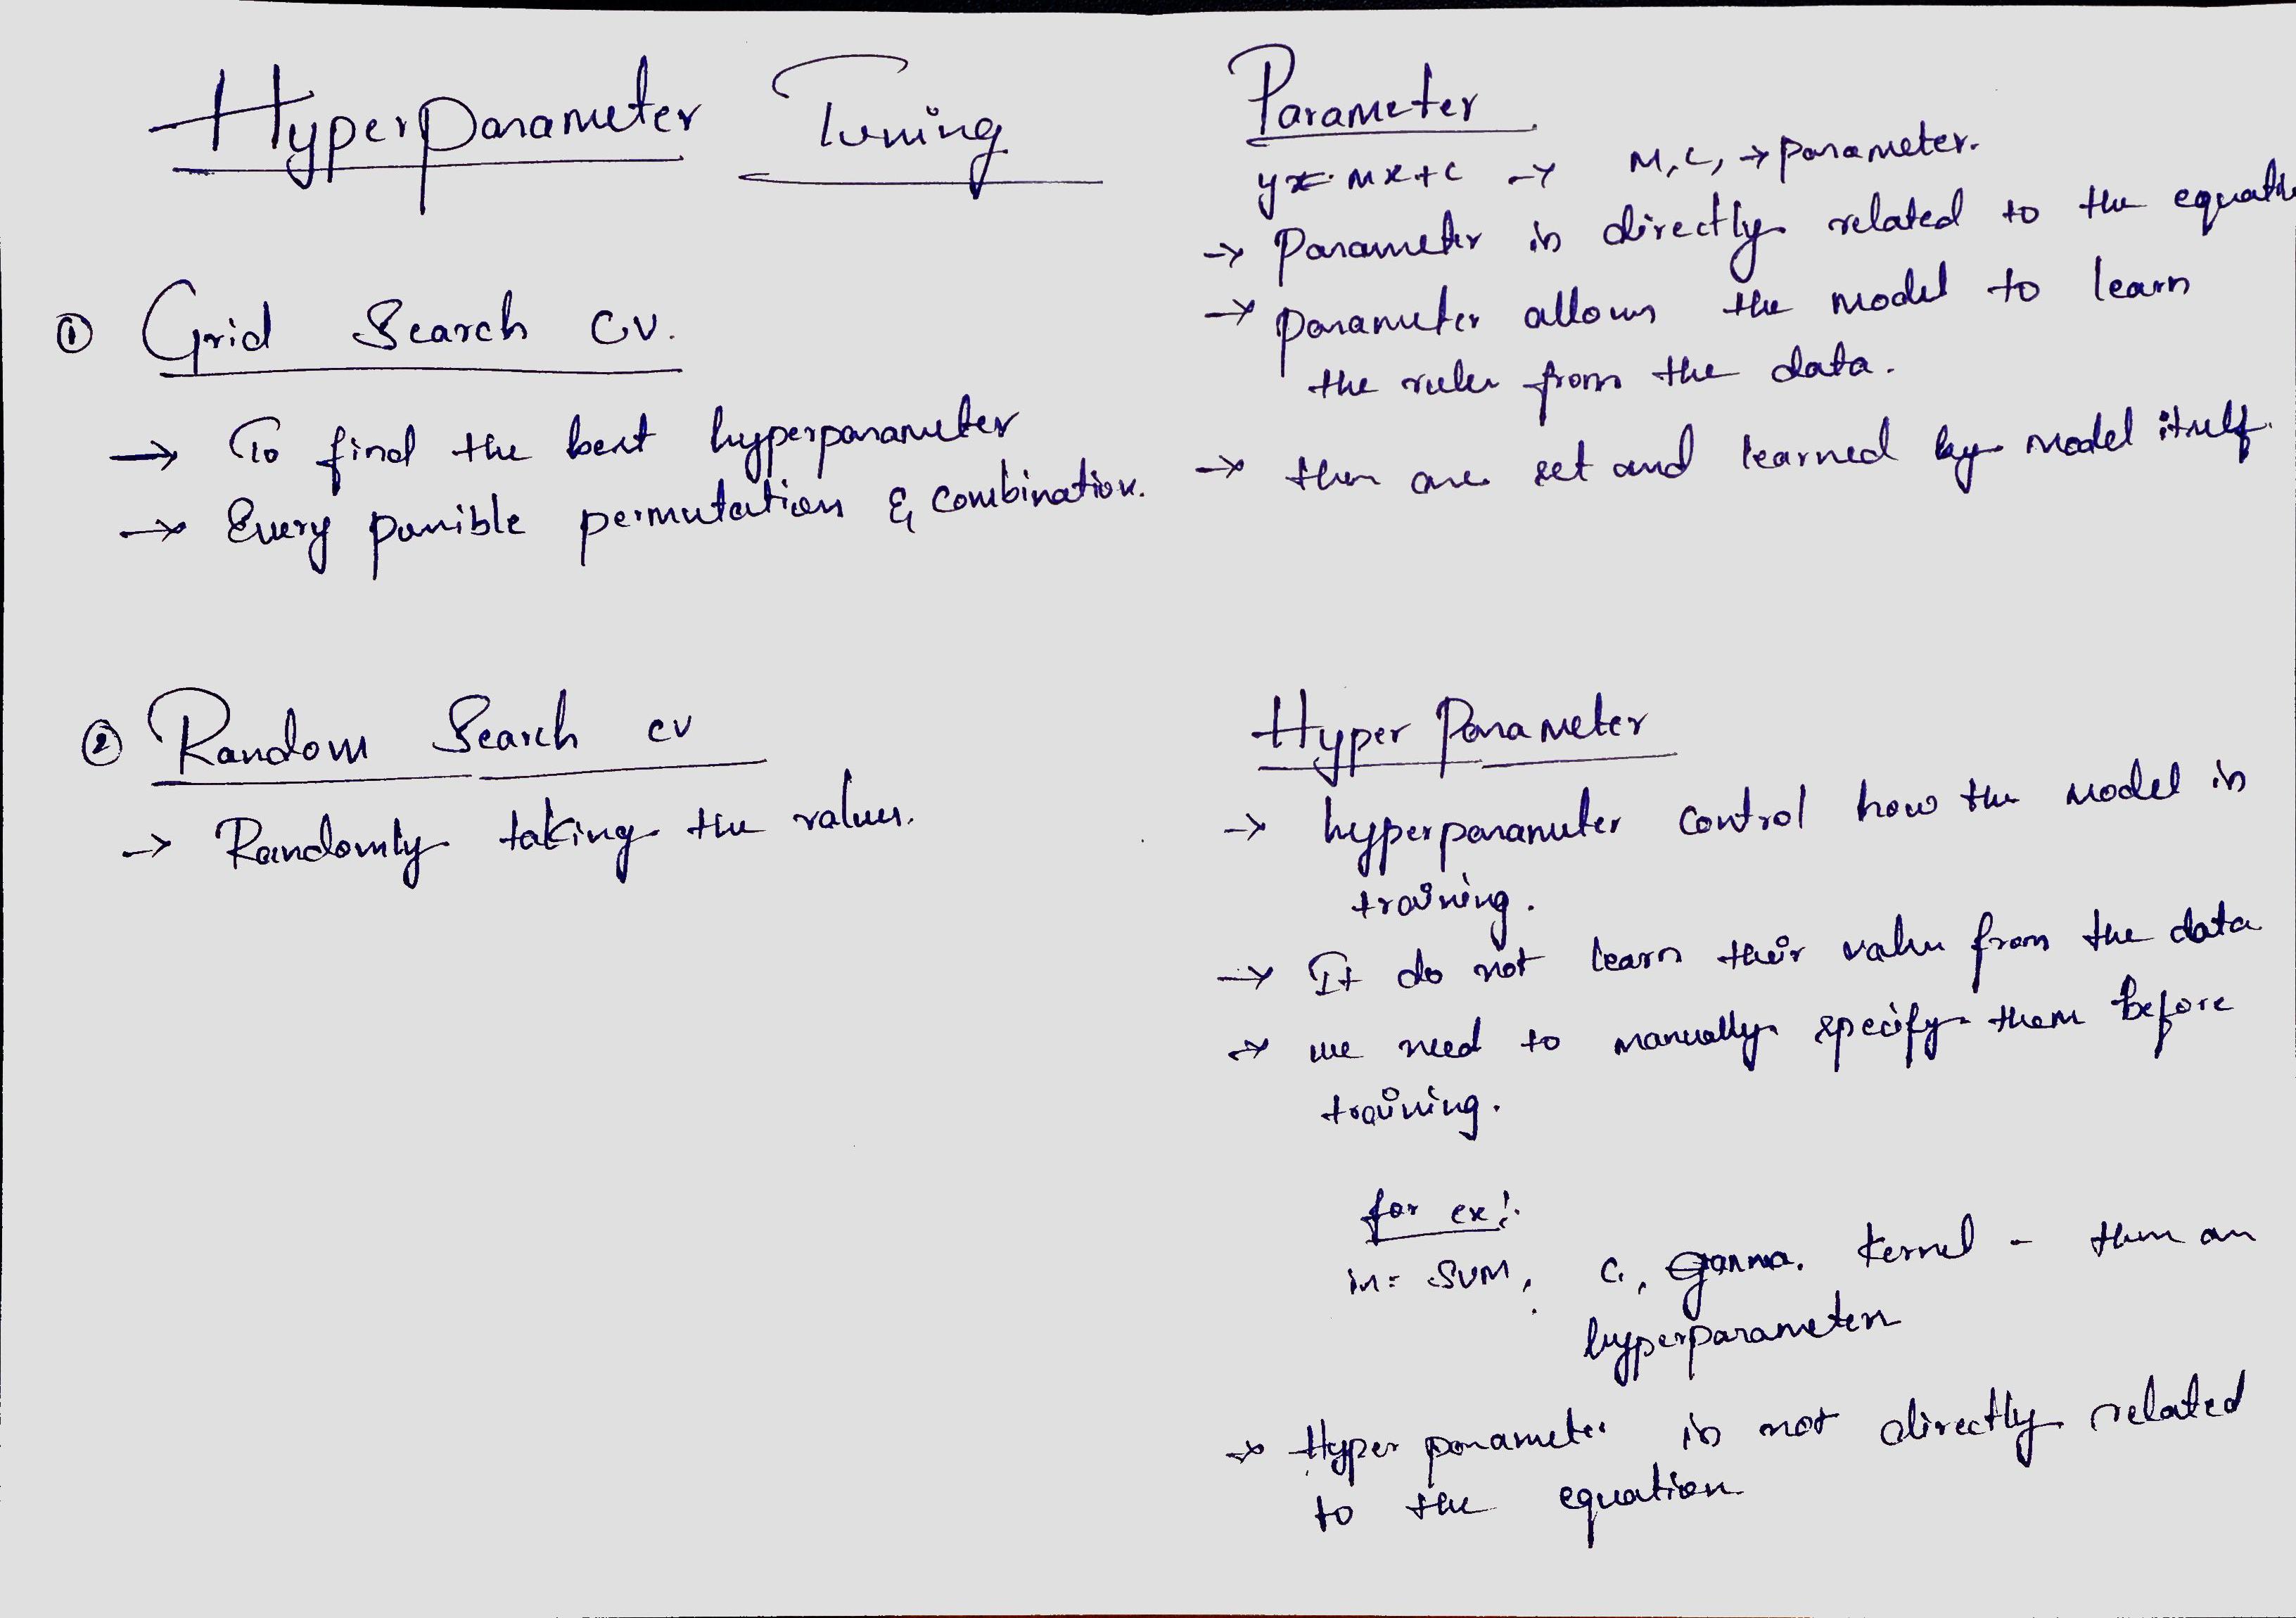 Hyperparameter Tuning
① Grid Search CV.
→ To find the best hyperparameter
→ Every possible permutation & combination.
② Random Search CV
→ Randomly taking the values.
Parameter
y = mx + c → M, C, → parameter.
→ Parameter is directly related to the equation
→ parameter allows the model to learn
the rules from the data.
→ these are set and learned by model itself.
Hyper Parameter
→ hyperparameter control how the model is
training.
→ It do not learn their value from the data
→ we need to manually specify them before
training.
for ex:
in: SVM, C, gamma, kernel - these are
hyperparameters
→ Hyper parameter is not directly related
to the equation